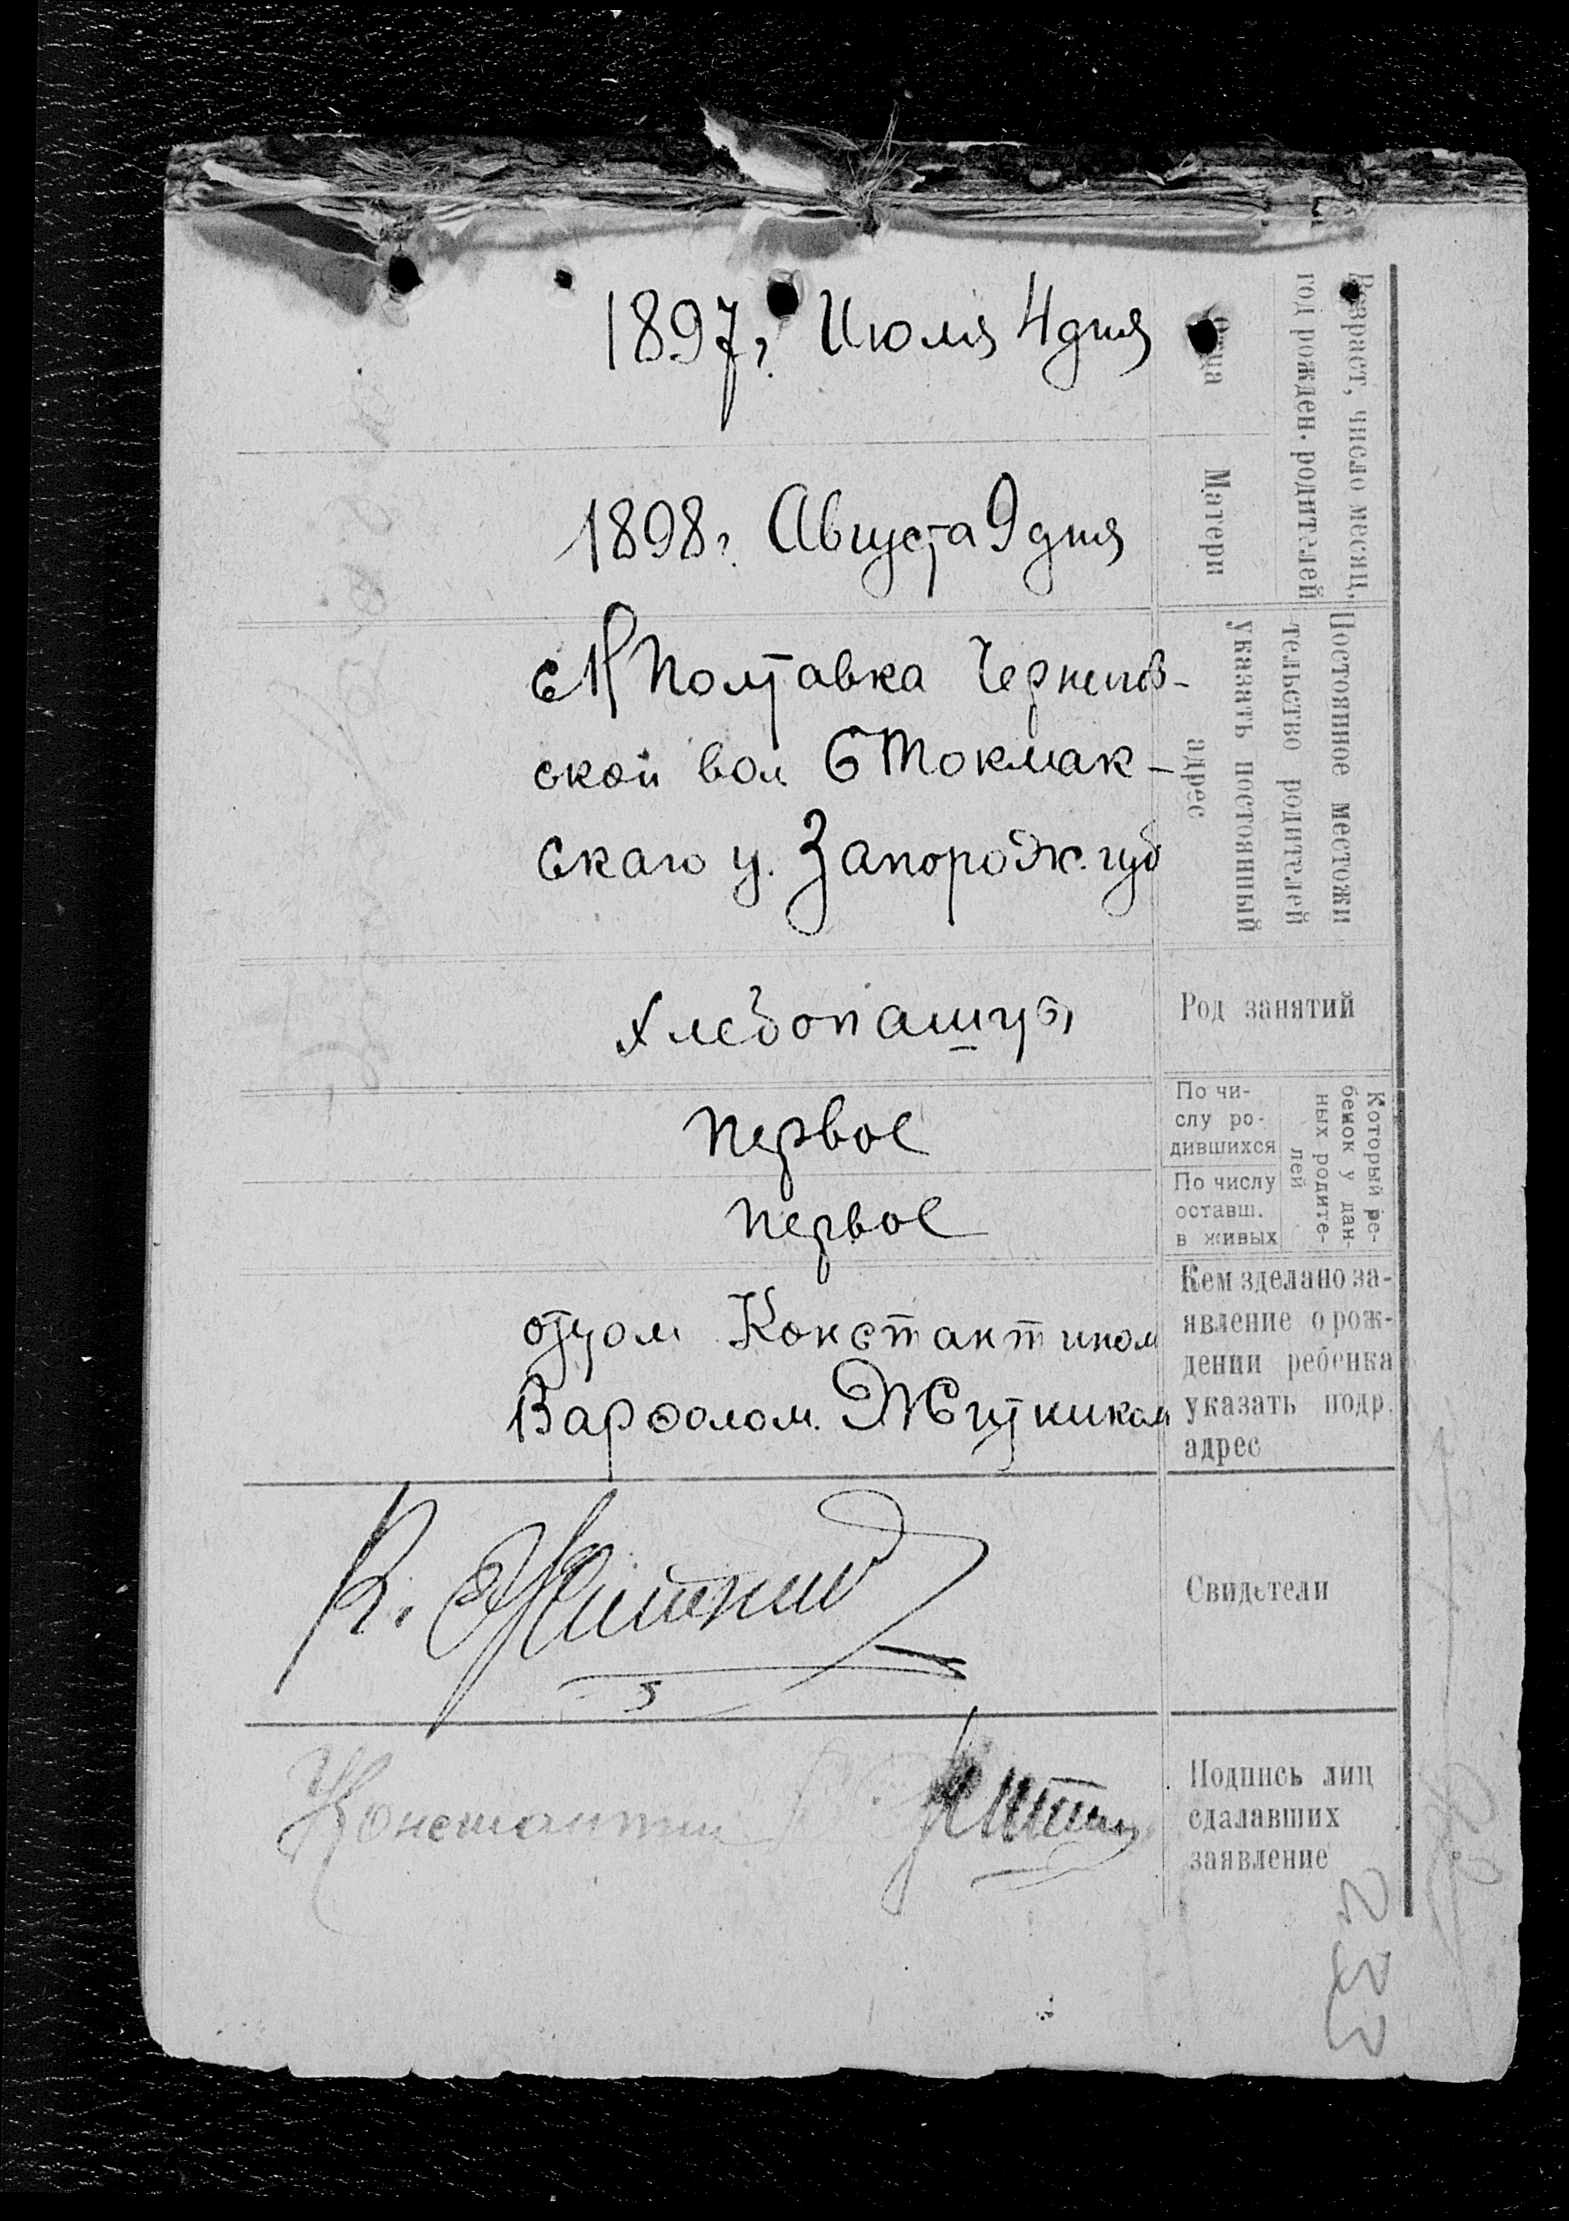 Возраст, число месяц,
год рожден. родителей
Отца
1897 г. Июля 4 дня
Матери
1898 г. Августа 9 дня
Постоянное местожи
тельство родителей
указать постоянный
адрес
с Н Полтавка Чернигов-
ской вол Б Токмак-
скаго у. Запорож. губ
Род занятий
хлебопашцы
Который ре-
бенок у дан-
ных родите-
лей
По чи-
слу ро-
дившихся
первое
По числу
оставш.
в живых
первое
Кем зделано за-
явление о рож-
дении ребенка
указать подр.
адрес
отцом Константином
Варфолом. Житником
Свидетели
К.
Подпись лиц
сдалавших
заявление
Константин
233